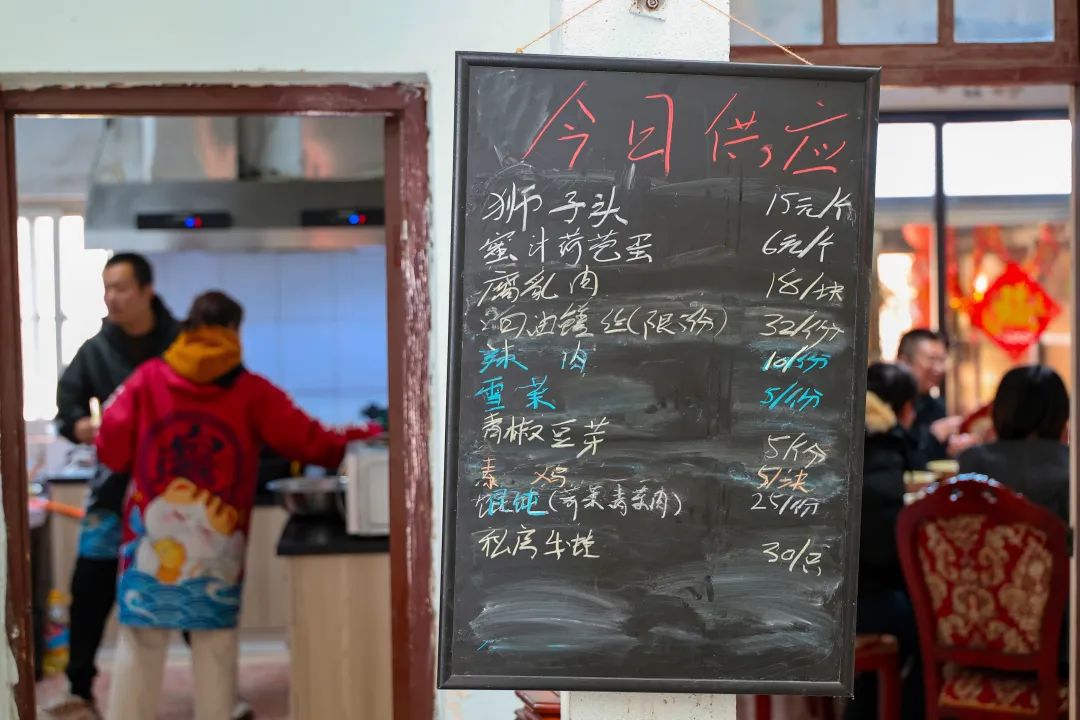 今日供应
狮子头 15元/个
蜜汁荷苞蛋 6元/个
腐乳肉 18/块
响油鳝丝(限份) 32/份
辣肉 10/份
雪菜 5/份
青椒豆芽 5/份
素鸡 5/块
馄饨(荠菜青菜肉) 25/份
私房牛蛙 30/只